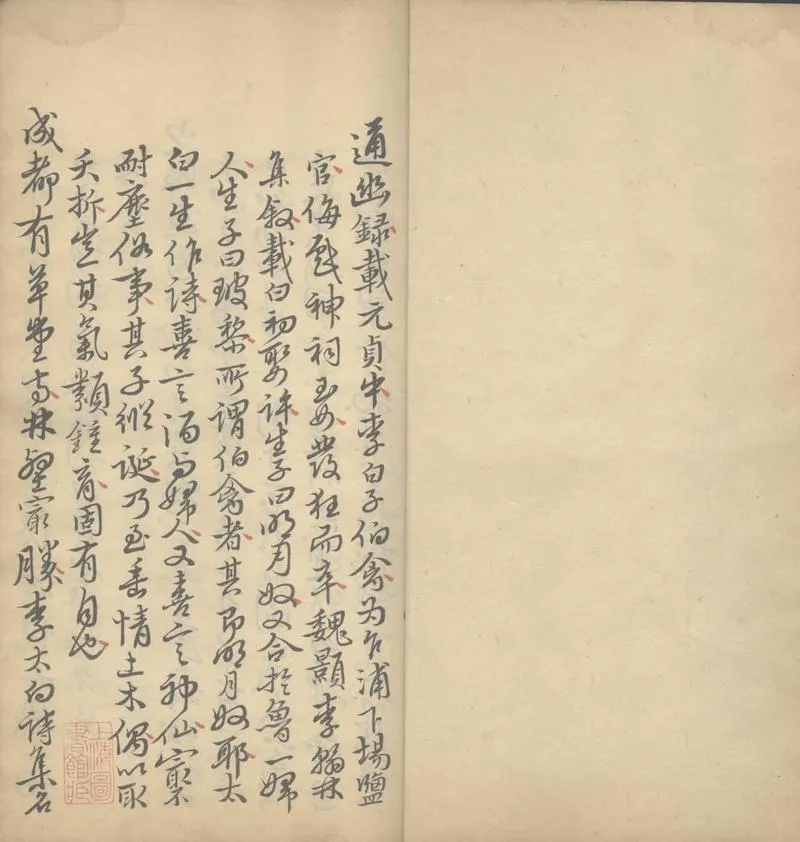 通幽録載元貞中李白子伯禽为乍浦下場鹽
官侮戲神祠玉女發狂而卒魏顥李翰林
集叙載白初娶許生子曰明月奴又合於魯一婦
人生子曰玻黎所謂伯禽者其即明月奴耶太
白一生作詩喜言酒与婦人又喜言神仙寂不
耐塵俗事其子縱誕乃至垂情土木偶以取
夭折豈其氣類鍾育固有自也
成都有草堂寺林壑寂勝李太白詩集名
上海圖書館藏